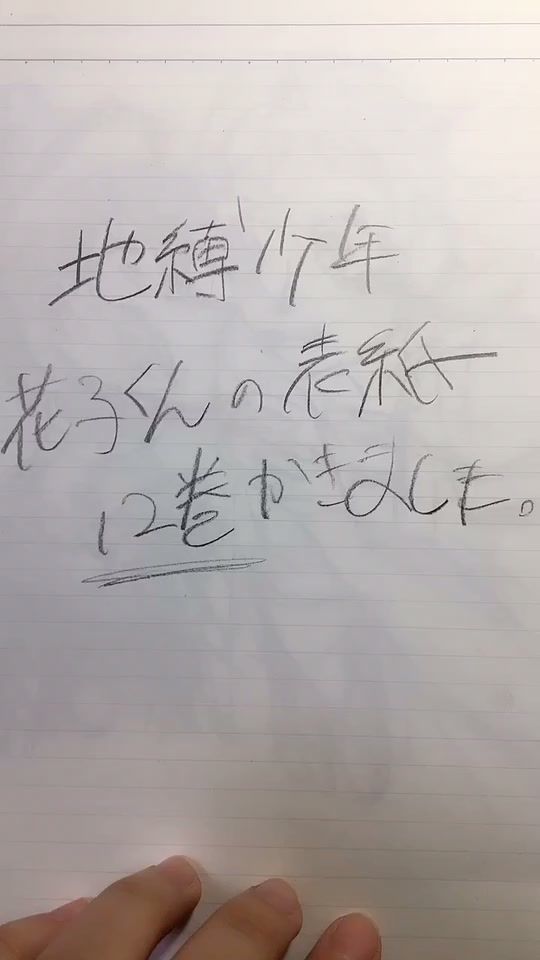 地縛少年
花子くんの表紙
12巻かきました。